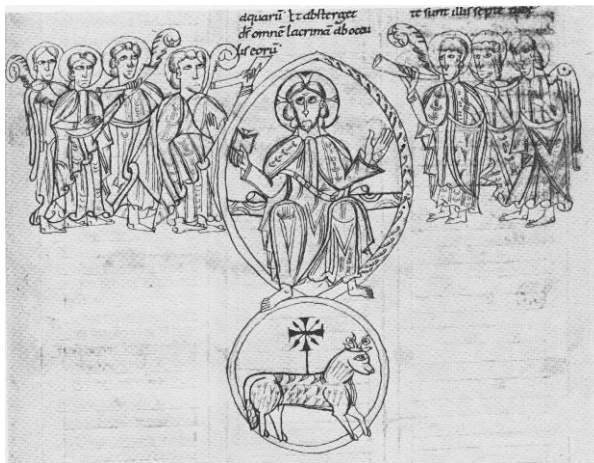 aquarū Et absterget
dš omnē lacrimā ab ocu
lis eorū
te sunt illis septe